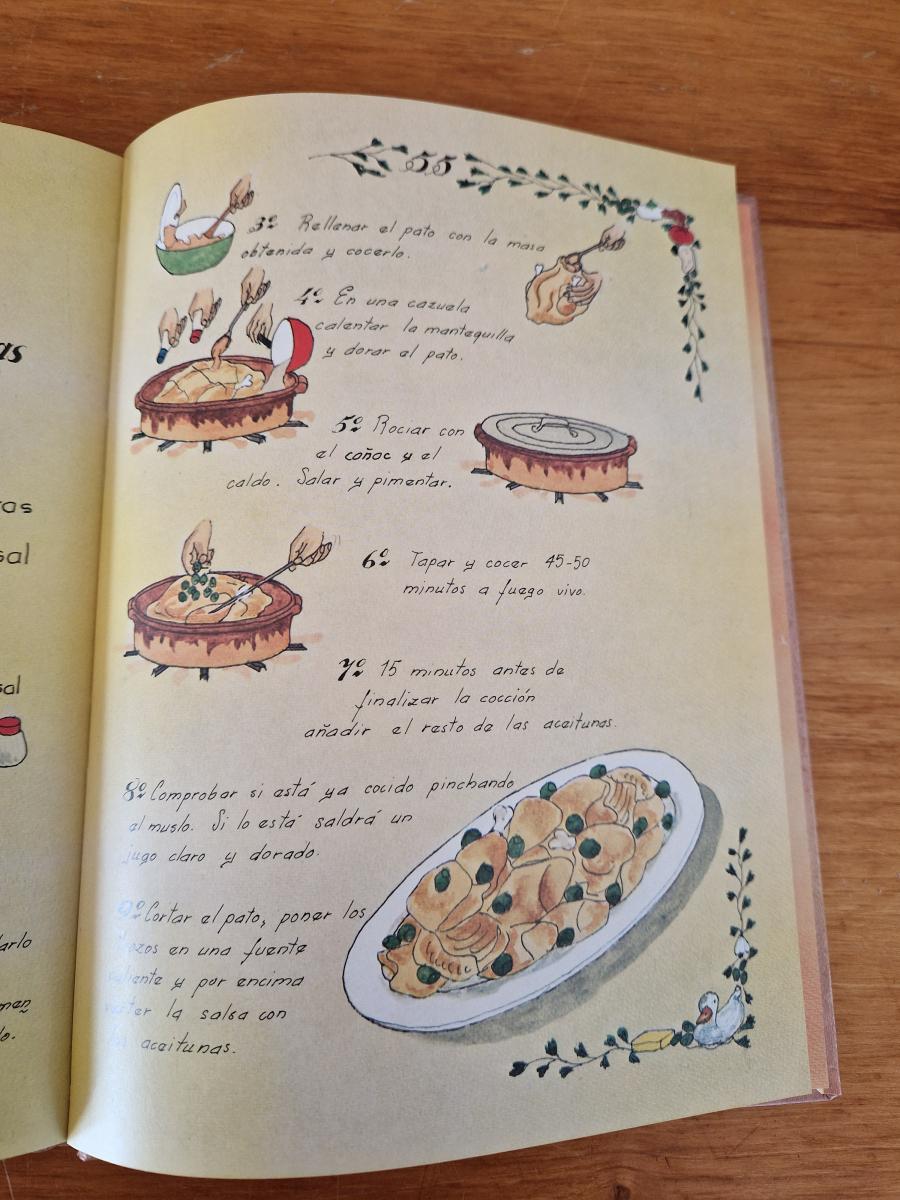 as
as
sal
sal
arlo
men
o.
55
3º Rellenar el pato con la masa
obtenida y cocerlo.
4º En una cazuela
calentar la mantequilla
y dorar el pato.
5º Rociar con
el coñac y el
caldo. Salar y pimentar.
6º Tapar y cocer 45-50
minutos a fuego vivo.
7º 15 minutos antes de
finalizar la cocción
añadir el resto de las aceitunas.
8º Comprobar si está ya cocido pinchando
el muslo. Si lo está saldrá un
jugo claro y dorado.
9º Cortar el pato, poner los
trozos en una fuente
caliente y por encima
verter la salsa con
las aceitunas.